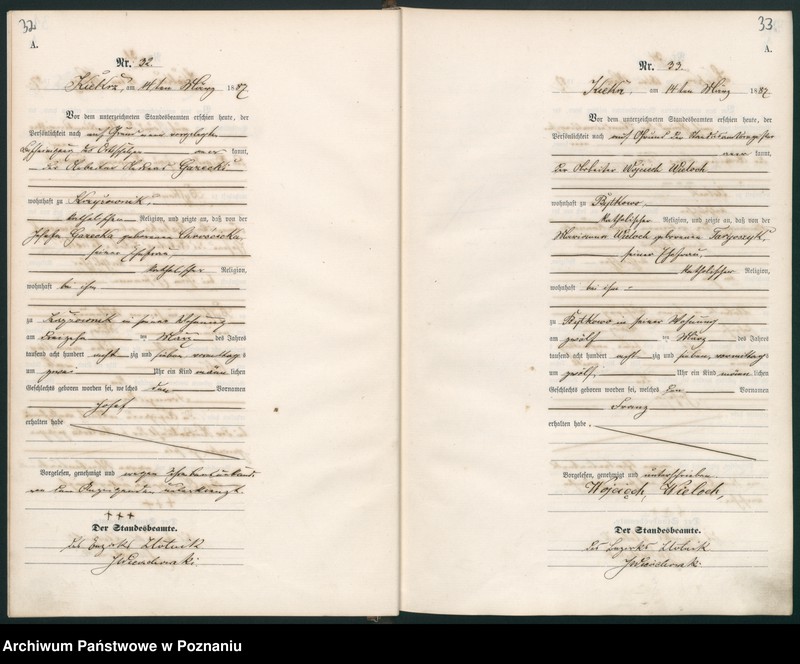 32
A.
Nr. 32.
Kiekrz, am 14ten März 1887.
Vor dem unterzeichneten Standesbeamten erschien heute, der
Persönlichkeit nach auf Grund einer vorgelegten
Bescheinigung des kannt,
der Arbeiter Andreas Garecki
wohnhaft zu
katholischen Religion, und zeigte an, daß von der
Josefa Garecka geborenen
seiner Ehefrau,
katholischer Religion,
wohnhaft bei ihm
zu in seiner Wohnung
am dreizehn ten März des Jahres
tausend acht hundert acht zig und sieben, vormittags
um zwei Uhr ein Kind männlichen
Geschlechts geboren worden sei, welches den Vornamen
Josef
erhalten habe
Vorgelesen, genehmigt und wegen Schreibensunkunde
von dem Anzeigenden unterkreuzt.
+++
Der Standesbeamte.
des Bezirks Zlotnik
33
A.
Nr. 33.
Kiekrz, am 14ten März 1887
Vor dem unterzeichneten Standesbeamten erschien heute, der
Persönlichkeit nach auf Grund der
kannt,
der Arbeiter Wojciech Wieloch
wohnhaft zu
katholischer Religion, und zeigte an, daß von der
Marianna Wieloch geborenen
seiner Ehefrau,
katholischer Religion,
wohnhaft bei ihm
zu in seiner Wohnung
am zwölf ten März des Jahres
tausend acht hundert acht zig und sieben, vormittags
um zwölf Uhr ein Kind männlichen
Geschlechts geboren worden sei, welches den Vornamen
Franz
erhalten habe.
Vorgelesen, genehmigt und unterschrieben
Wojciech Wieloch,
Der Standesbeamte.
des Bezirks Zlotnik
Archiwum Państwowe w Poznaniu